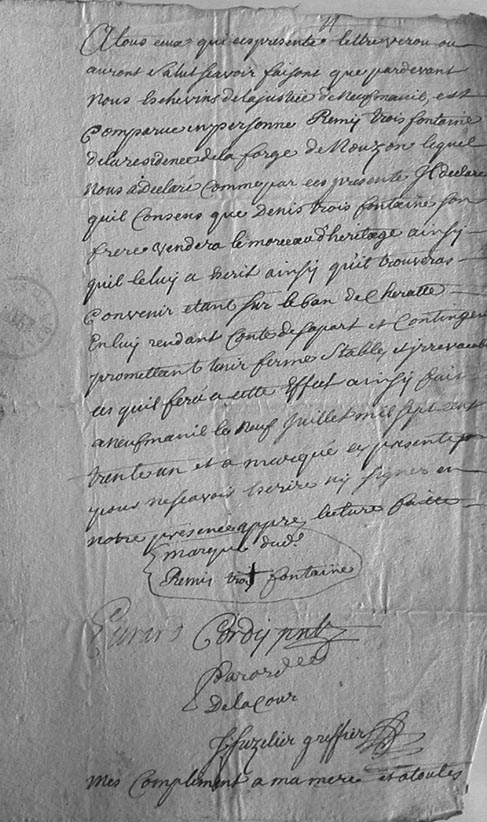 A tous ceux que ces presente lettre verou ou
auront Salut scavoir faisont que pardevant
Nous Eschevins de la justice de Neufmanil, est
Comparue en personne Remij trois fontaine
de la residence de la forge de Nouzon lequel
Nous a Declaré Comme par ces presente Jl declare
quil Consens que Denis trois fontaine son
frere vendera le morceau d'heritage ainsij
quil le luij a herit ainsij qu'il trouveras
Convenir etant sur le ban de Cheratte
En luij rendant Conte de sa part et Contingen
promettant tenir ferme Stable et irrevocable
ces quil fera a cette Effect ainsij fait
a neufmanil le neuf Juillet mil sept cent
trente un et a marqué ces presente
pour ne scavoir Escrire nij signer en
notre presence appre lecture faitte
marque dud.
Remis trois fontaine
Evrard Cordij
Delacour
J fuzelier greffier
Mes Compliment a ma mere et a toutes